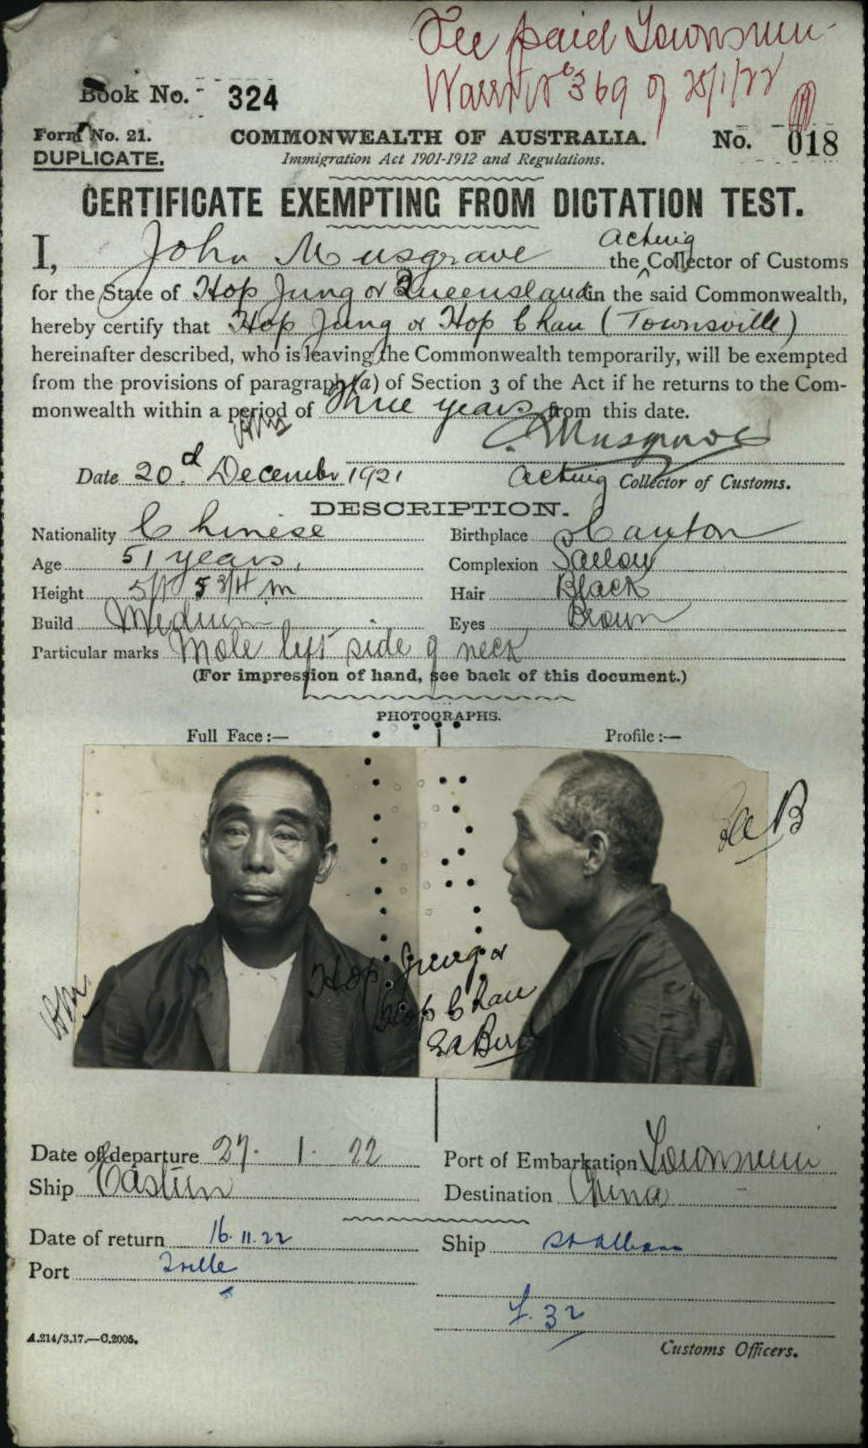 Fee paid Townsville
Warrt No 369 of 25/1/22
Book No. 324
Form No. 21.
COMMONWEALTH OF AUSTRALIA.
No. 018
DUPLICATE.
Immigration Act 1901-1912 and Regulations.
CERTIFICATE EXEMPTING FROM DICTATION TEST.
I, John Musgrave the Acting Collector of Customs
for the State of Hop Jung or Queensland in the said Commonwealth,
hereby certify that Hop Jung or Hop Chan (Townsville)
hereinafter described, who is leaving the Commonwealth temporarily, will be exempted
from the provisions of paragraph (a) of Section 3 of the Act if he returns to the Com-
monwealth within a period of Three years from this date.
Musgrave
Date 20.d December 1921 Acting Collector of Customs.
DESCRIPTION.
Nationality Chinese Birthplace Canton
Age 51 years. Complexion Sallow
Height 5ft 5 3/4 in Hair Black
Build Medium Eyes Brown
Particular marks Mole left side of neck
(For impression of hand, see back of this document.)
PHOTOGRAPHS.
Full Face:— Profile:—
Hop Jung or
Hop Chan
Date of departure 27. 1. 22 Port of Embarkation Townsville
Ship Eastern Destination China
Date of return 16.11.22 Ship St Albans
Port Tville
F. 32
A.214/3.17.—C.2005.
Customs Officers.